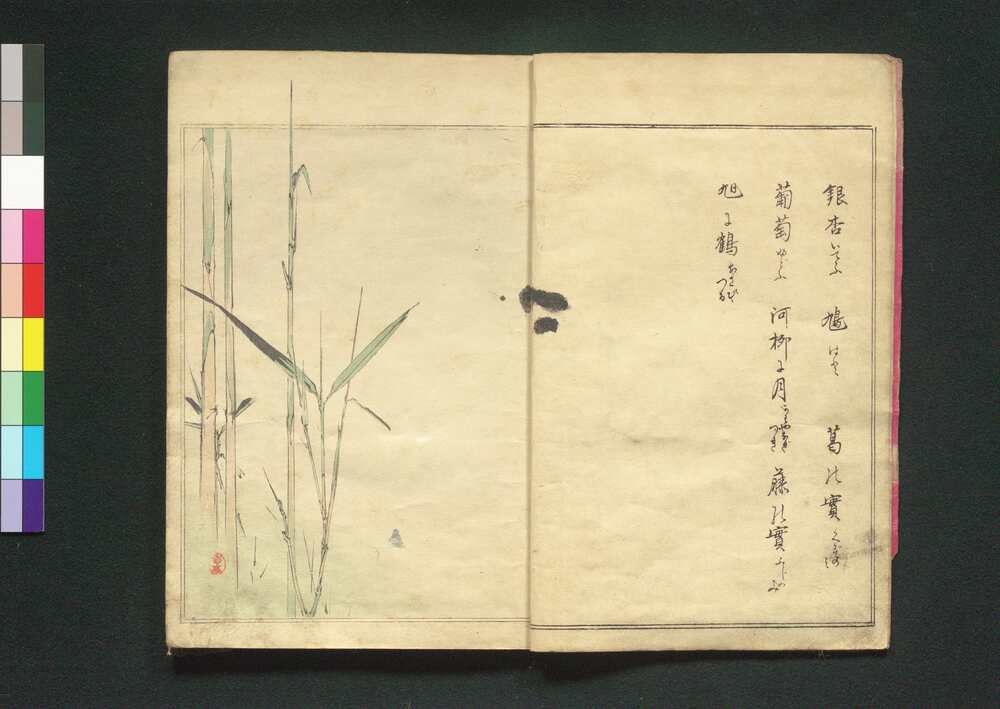 銀杏いてふ 鳩はと 葛の實くずのみ
葡萄ぶどふ 河柳に月かはやなぎにつき 藤の實ふじのみ
旭に鶴あさひにつる